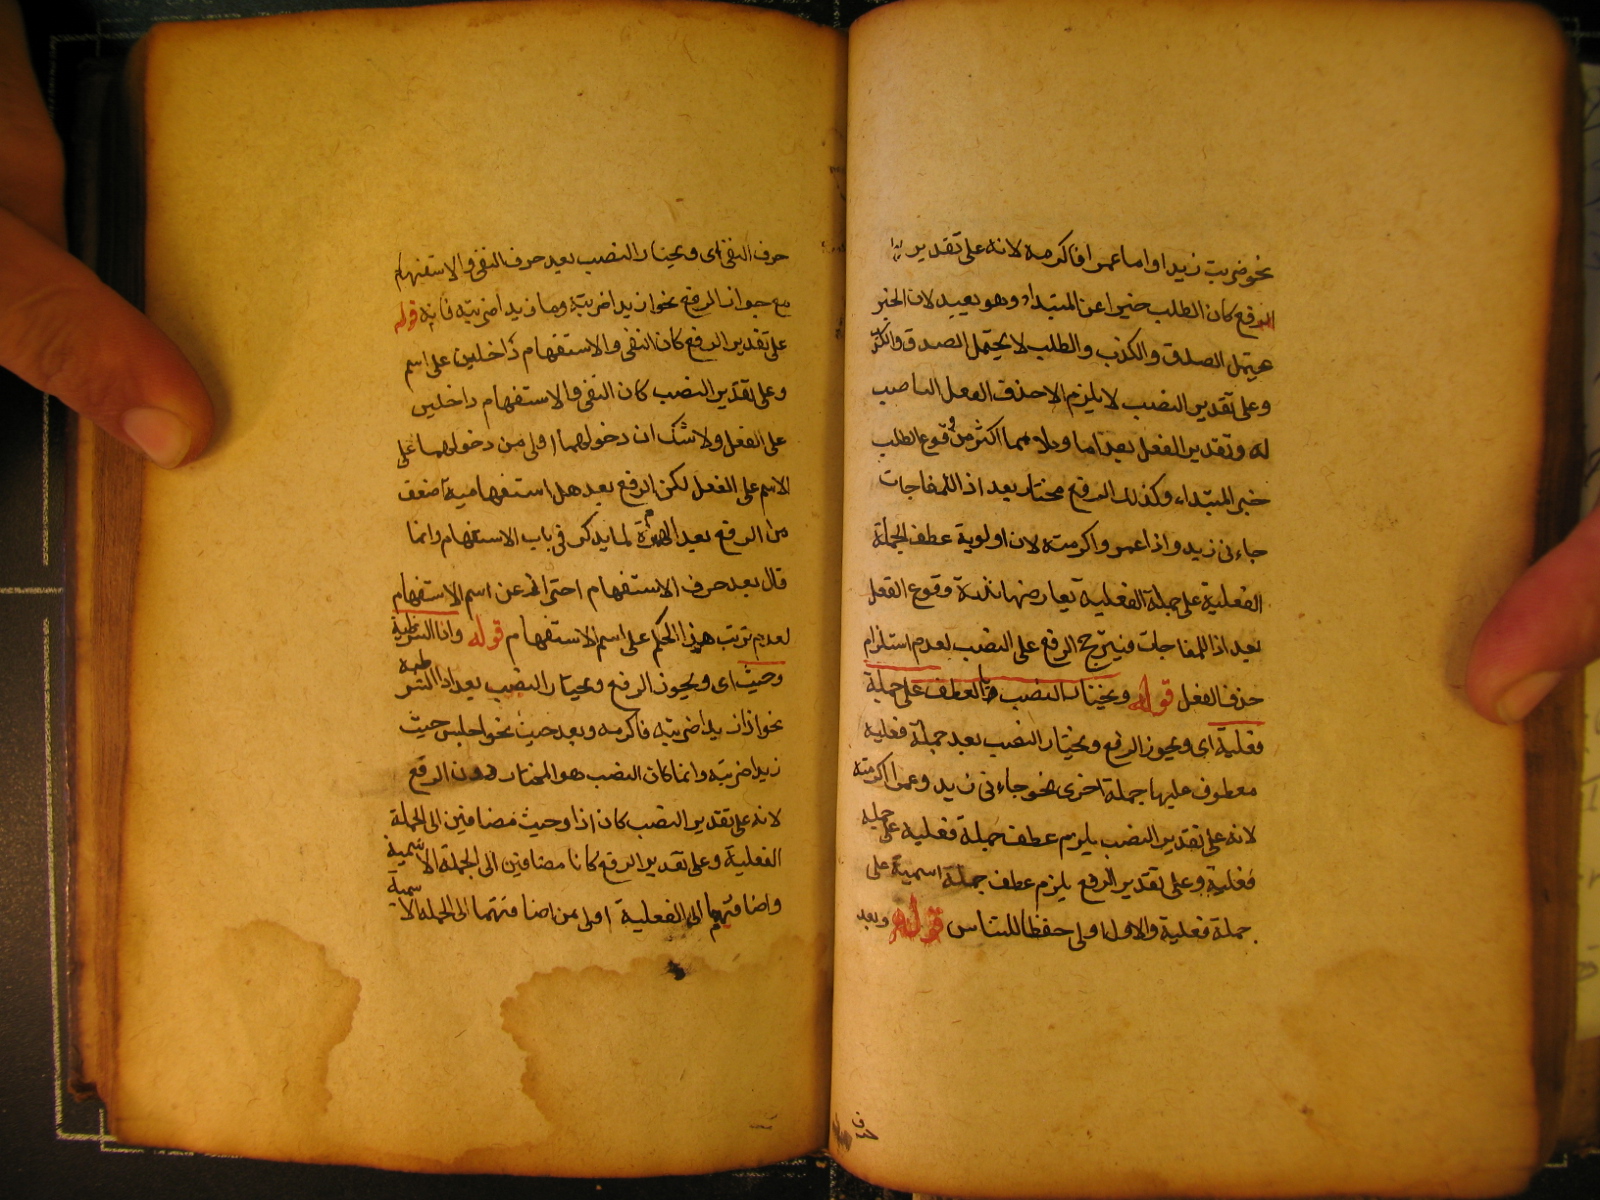 نحو ضربت زيدا واما عمرا فاكرمه لانه على تقدير
الرفع كان الطلب خبرا عن المبتداء وهو بعيد لان الخبر
يحتمل الصدق والكذب والطلب لا يحتمل الصدق والكذب
وعلى تقدير النصب لا يلزم الا حذف الفعل الناصب
له وتقدير الفعل بعد اما وبلا مما اكثر من وقوع الطلب
خبر المبتداء وكذلك الرفع مختار بعد اذا للمفاجات
جاءنى زيد واذا عمرو اكرمته لان اولوية عطف الجملة
الفعلية على جملة الفعلية تعارضها وقوع الفعل
بعد اذا للمفاجات فيترجح الرفع على النصب لعدم استلزام
حذف الفعل قوله ويختار النصب بالعطف على جملة
فعلية اى ويجوز الرفع ويختار النصب بعد جملة فعلية
معطوف عليها جملة اخرى نحو جاءنى زيد وعمرا اكرمته
لانه على تقدير النصب يلزم عطف جملة فعلية على جملة
فعلية وعلى تقدير الرفع يلزم عطف جملة اسمية على
جملة فعلية والاول اولى حفظا للتناسب قوله وبعد
حرف
حرف النفى اى ويختار النصب بعد حرف النفى والاستفهام
مع جواز الرفع نحو ازيدا ضربته وما زيدا ضربته فانه قوله
على تقدير الرفع كان النفى والاستفهام داخلين على اسم
وعلى تقدير النصب كان النفى والاستفهام داخلين
على الفعل ولا شك ان دخولهما اولى من دخولهما على
الاسم على الفعل لكن الرفع بعد هل استفهامية اضعف
من الرفع بعد الهمزة لما يذكر فى باب الاستفهام وانما
قال بعد حرف الاستفهام احترازا عن اسم الاستفهام
لعدم ترتب هذا الحكم على اسم الاستفهام قوله واذا الشرطية
وحيث اى ويجوز الرفع ويختار النصب بعد اذا الشرطية
نحو اذا زيدا ضربته فاكرمه وبعد حيث نحو اجلس حيث
زيدا ضربته وانما كان النصب هو المختار دون الرفع
لانه على تقدير النصب كان اذا وحيث مضافين الى الجملة
الفعلية وعلى تقدير الرفع كانا مضافين الى الجملة الاسمية
واضافتهما الى الفعلية اولى من اضافتهما الى الجملة الاسمية